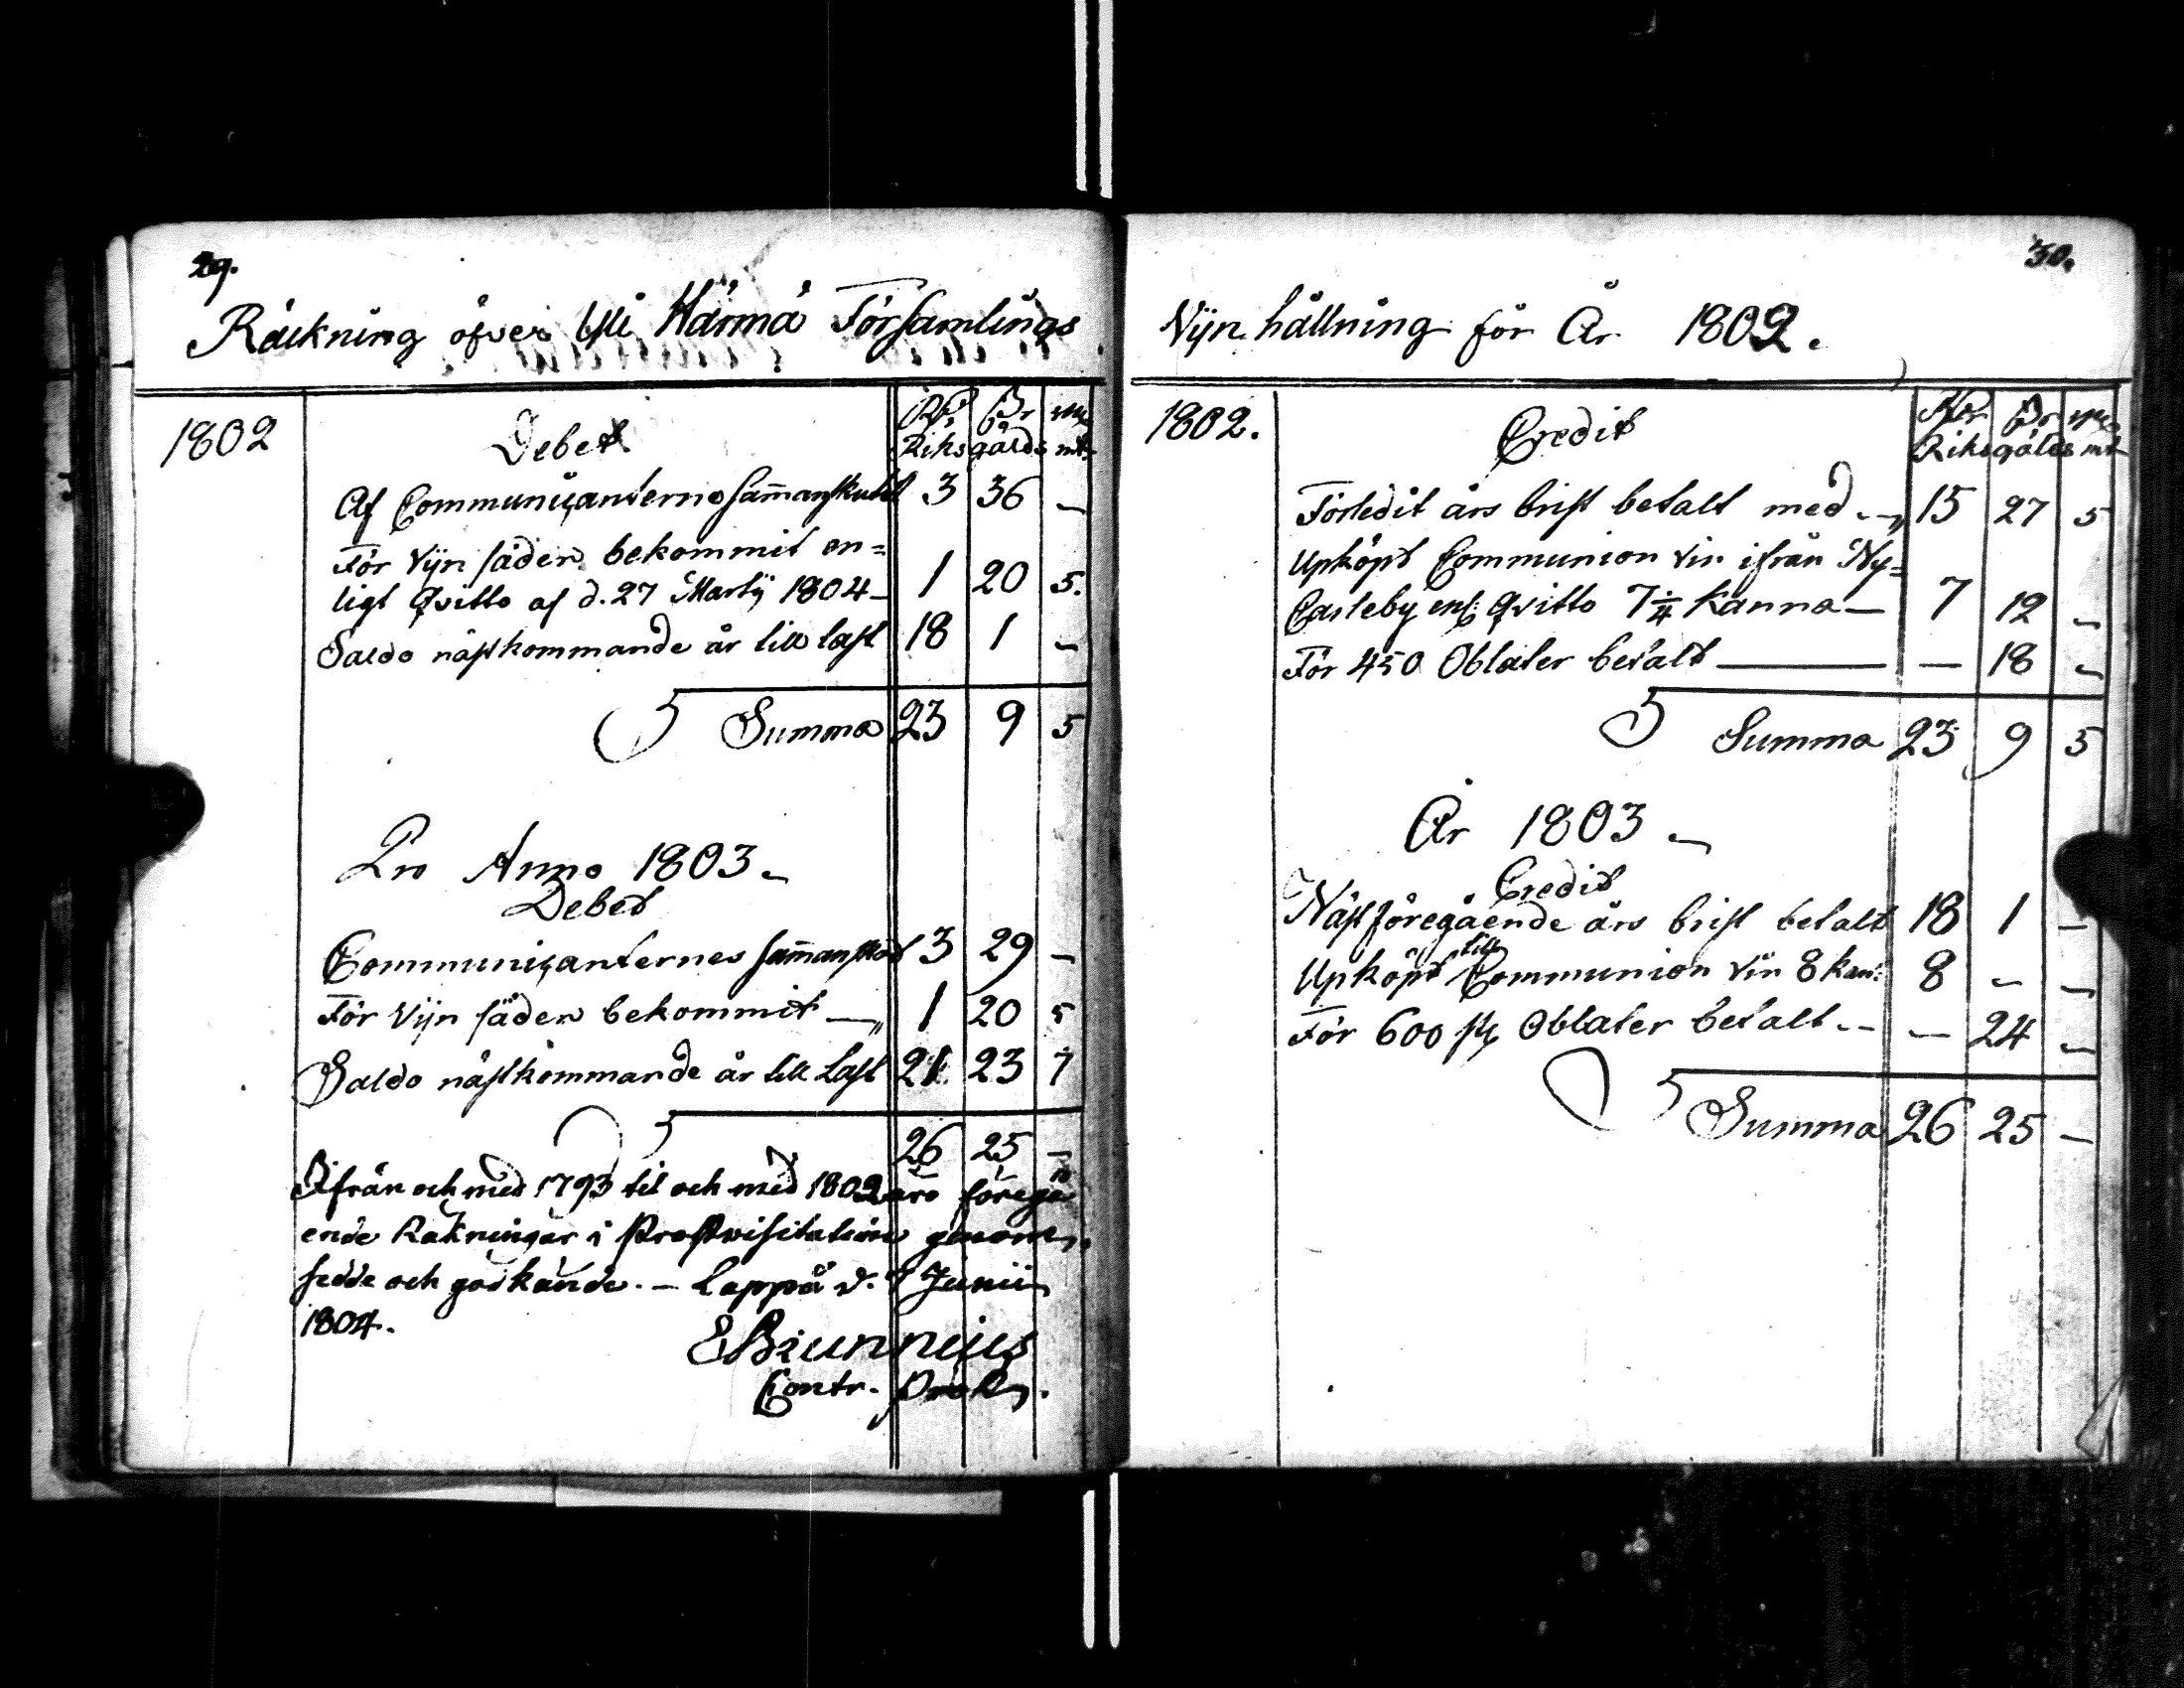 29.
Räckning öfver Ylli Härmä Församlings
1802
Debet
Rdr ßr
Riksgälds mt
Af Communicanterne samanskutit 3 36 —
För Vijn säden bekommit en=
ligt Qvitto af d. 27 Martij 1804 — 1 20 5.
Saldo nästkommande år till last 18 1 —
Summa 23 9 5
Pro Anno 1803 —
Debet
Communicanternes samanskåt 3 29 —
För Vijn säden bekommit — 1 20 5
Saldo nästkommande år till Last 21 23 7
26 25 —
Ifrån och med 1793 til och med 1802 äro föregå
ende Räkningar i Prostvisitation genom
sedde och godkände. — Lappå d. 8 Junii
1804.
E Brunnius
Contr. Prost.
30.
Vijn hållning för År 1802.
1802.
Credit
Rdr ßr
Riksgälds mt
Förledit års brist betalt med — 15 27 5
Upköpt Communion vin ifrån Ny=
Carleby enl: Qvitto 7 1/4 Kanna — 7 12 —
För 450 Oblater betalt — — 18 —
Summa 23 9 5
År 1803 —
Credit
Näst föregående års brist betalt 18 1 —
Upköpt till Communion Vin 8 kan: 8 — —
För 600 st Oblater betalt — — 24 —
Summa 26 25 —